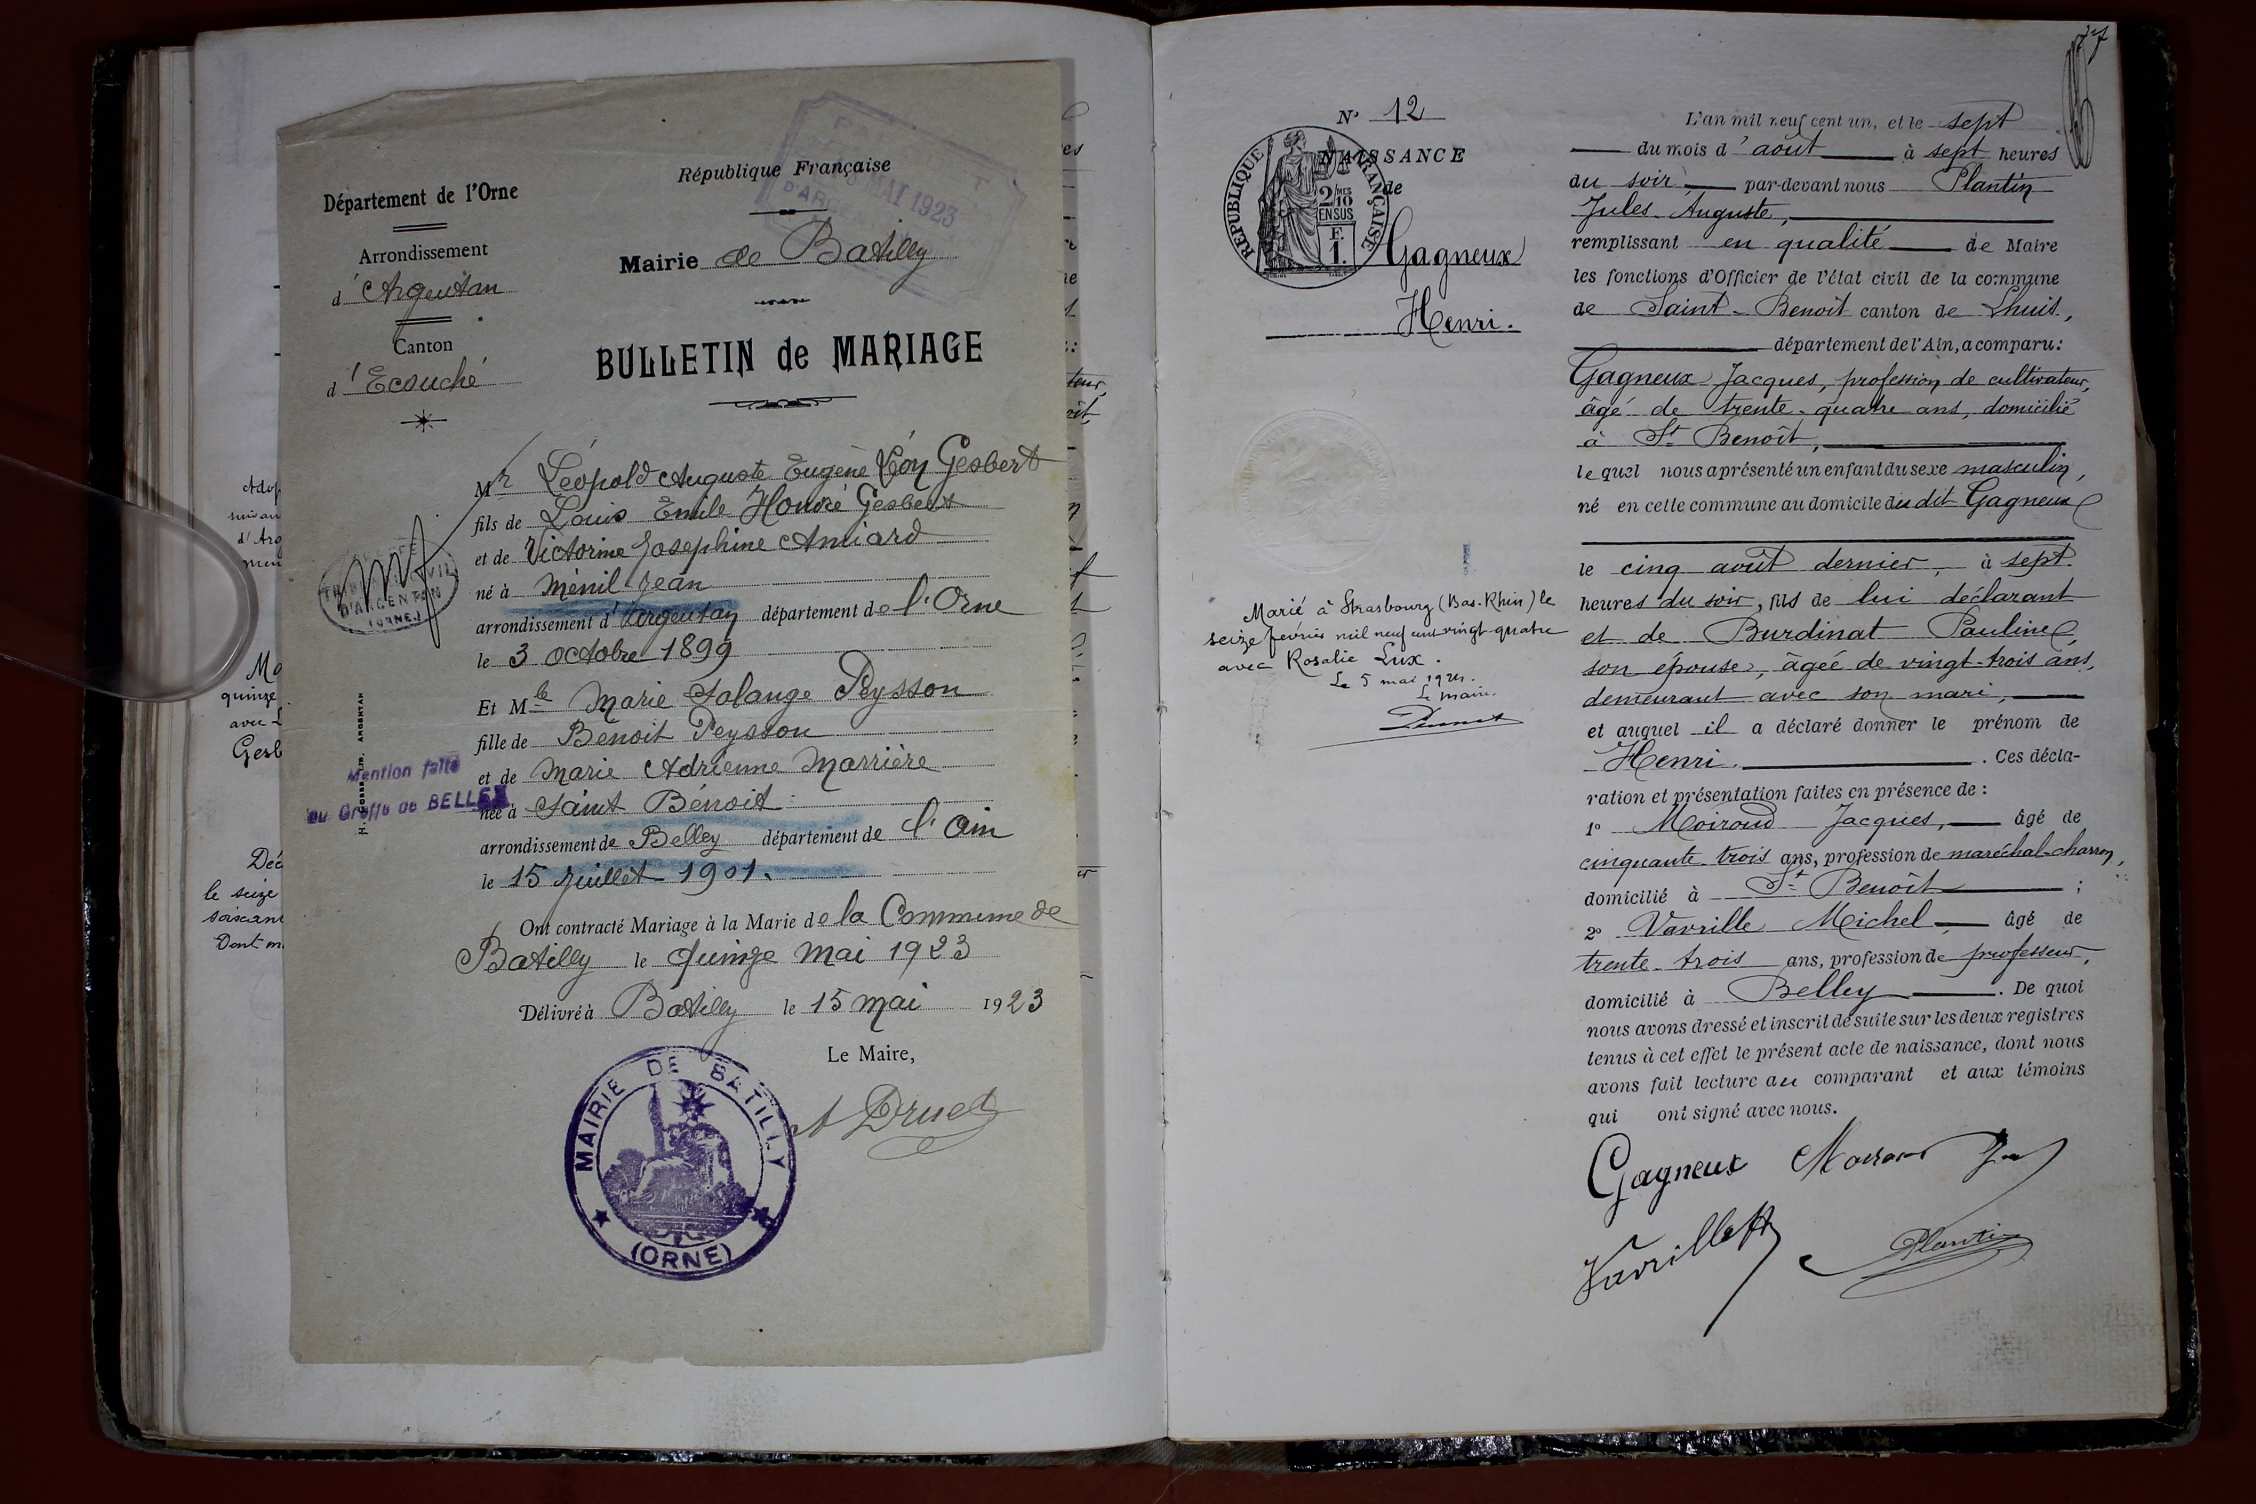 Département de l'Orne
Arrondissement
d'Argentan
Canton
d'Ecouché
République Française
MAI 1923
Mairie de Batilly
BULLETIN de MARIAGE
Mr Léopold Auguste Eugène Léon Gesbert
fils de Louis Emile Honoré Gesbert
et de Victorine Josephine Amiard
né à Ménil-Jean
arrondissement d'Argentan département de l'Orne
le 3 octobre 1899
Et Mlle Marie Solange Peysson
fille de Benoit Peysson
et de Marie Adrienne Marrière
née à Saint Bénoit
arrondissement de Belley département de l'Ain
le 15 juillet 1901.
Ont contracté Mariage à la Marie de la Commune de
Batilly le quinze mai 1923
Délivré à Batilly le 15 mai 1923
Le Maire,
A Druet
MAIRIE DE BATILLY
(ORNE)
TRIBUNAL CIVIL
D'ARGENTAN
(ORNE)
Mention faite
au Greffe de BELLEY
ARGENTAN
d'Arg
Ma
quinze
avec L
Gesb
Déc
le seize
soixant
Dont m
N° 12
NAISSANCE
de
Gagneux
Henri.
RÉPUBLIQUE FRANÇAISE
2/10
EN SUS
F.
1.
Marié à Strasbourg (Bas-Rhin) le
seize février mil neuf cent vingt-quatre
avec Rosalie Lux.
Le 5 mai 1924.
Le maire.
L'an mil neuf cent un, et le sept
du mois d'août à sept heures
du soir par-devant nous Plantin
Jules Auguste,
remplissant en qualité de Maire
les fonctions d'Officier de l'état civil de la commune
de Saint-Benoît canton de Lhuis,
département de l'Ain, a comparu:
Gagneux Jacques, profession de cultivateur,
âgé de trente-quatre ans, domicilié
à St Benoît,
lequel nous a présenté un enfant du sexe masculin,
né en cette commune au domicile du dit Gagneux
le cinq août dernier, à sept
heures du soir, fils de lui déclarant
et de Burdinat Pauline,
son épouse, âgée de vingt-trois ans,
demeurant avec son mari,
et auquel il a déclaré donner le prénom de
Henri. Ces décla-
ration et présentation faites en présence de :
1° Moiroud Jacques, âgé de
cinquante-trois ans, profession de maréchal-charron,
domicilié à St Benoît ;
2° Vavrille Michel, âgé de
trente-trois ans, profession de professeur,
domicilié à Belley. De quoi
nous avons dressé et inscrit de suite sur les deux registres
tenus à cet effet le présent acte de naissance, dont nous
avons fait lecture au comparant et aux témoins
qui ont signé avec nous.
Gagneux Moiroud
Plantin